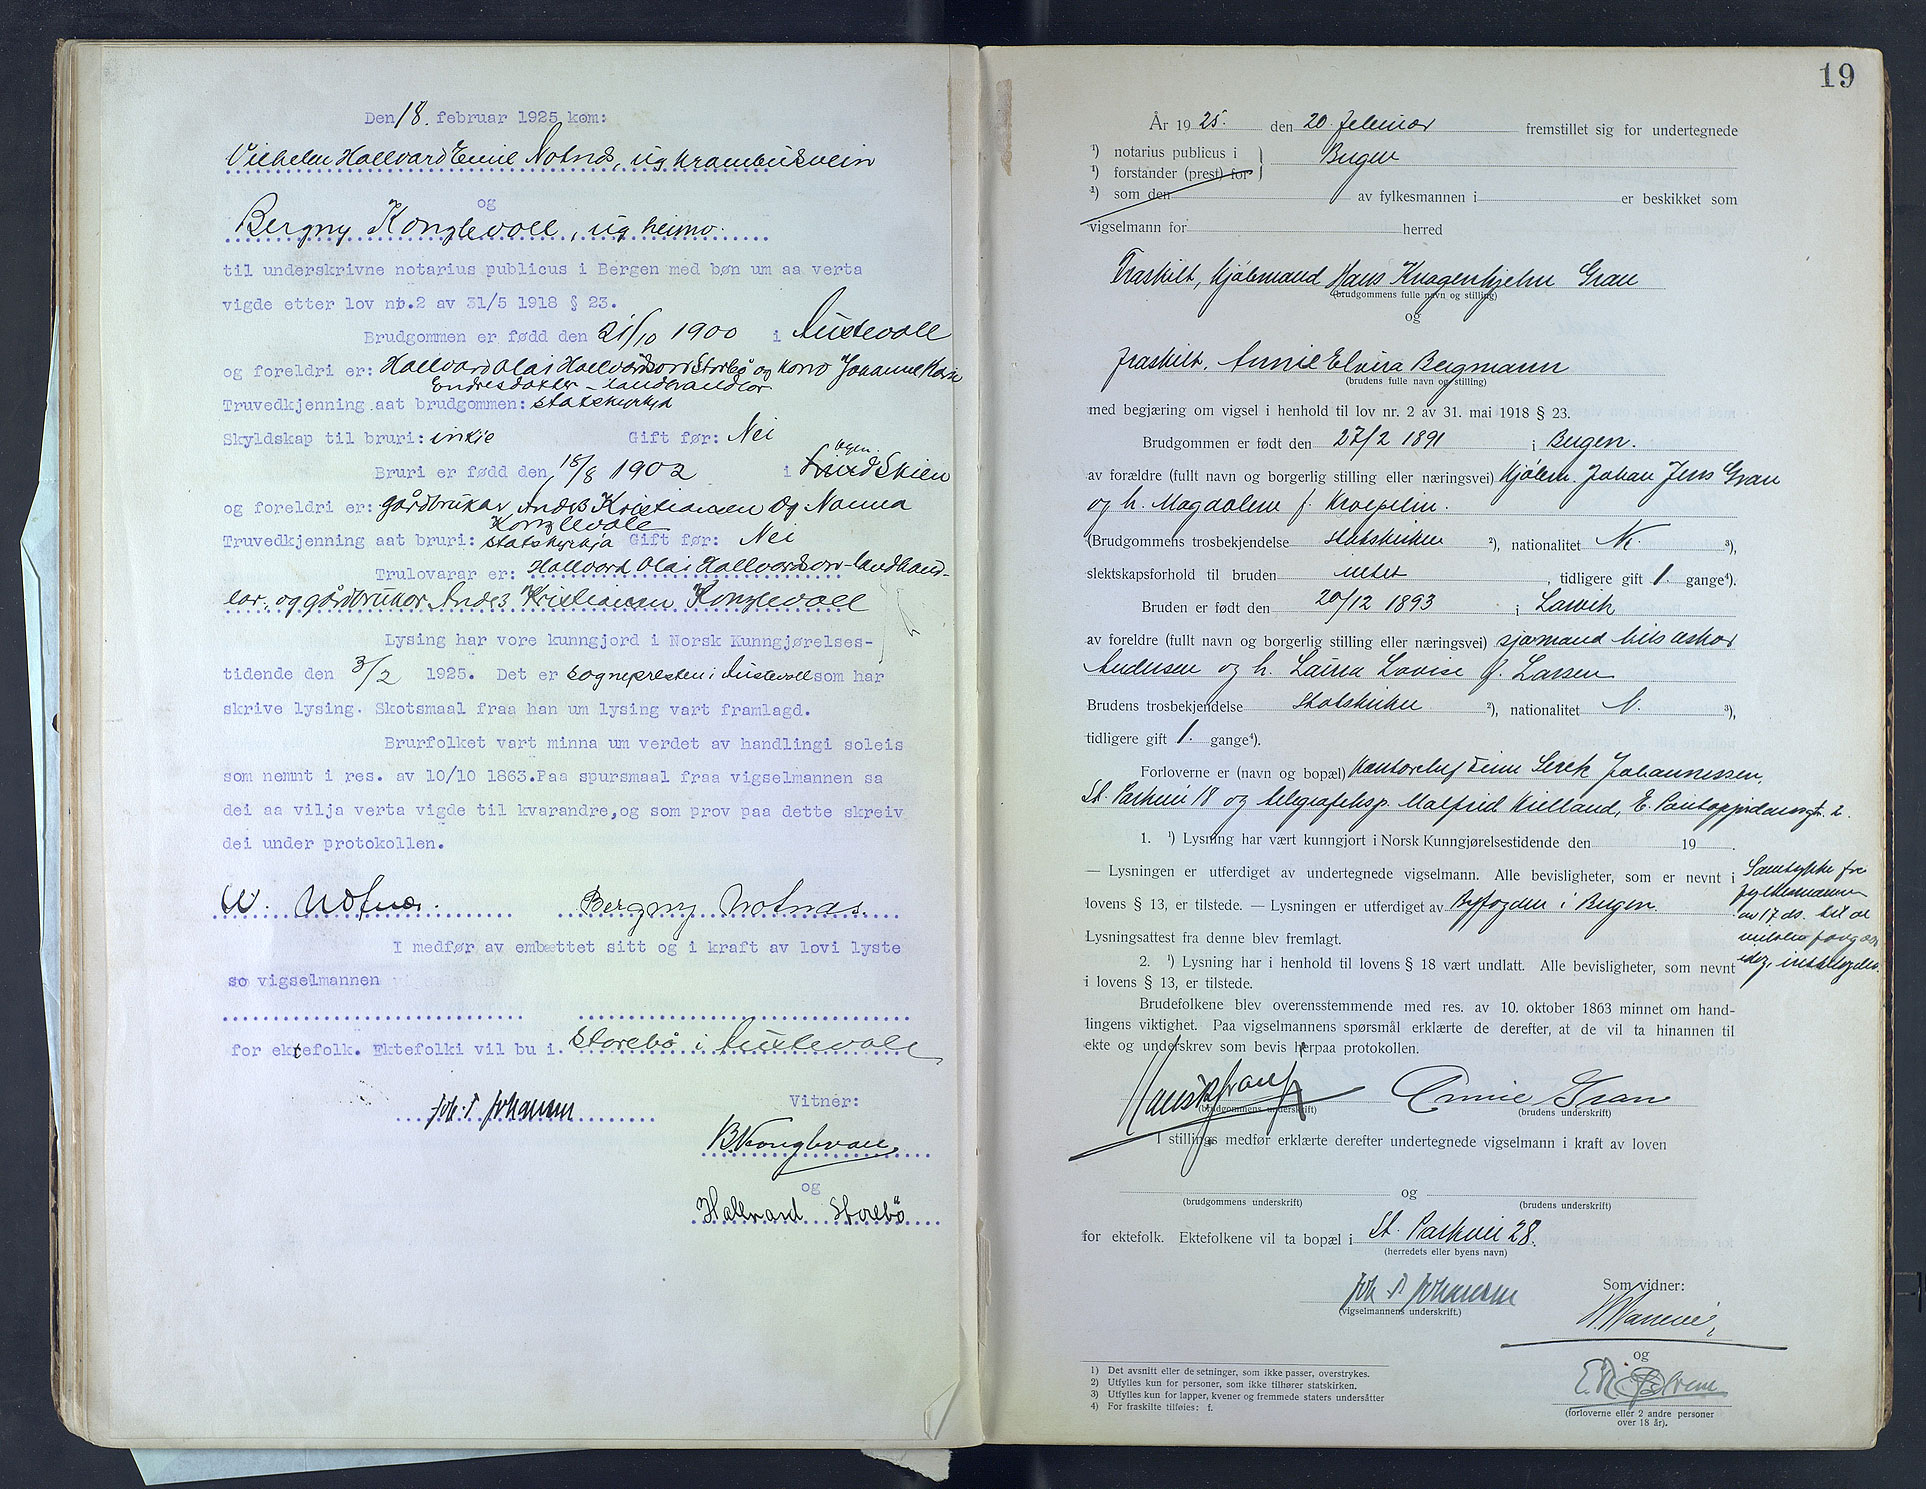 Den 18. februar 1925 kom:
Vilhelm Hallvard Emil Notnæs, ug krambusvein
og
Bergny Konglevoll, ug heimv.
til underskrivne notarius publicus i Bergen med bøn um aa verta
vigde etter lov nr.2 av 31/5 1918 § 23.
Brudgommen er fødd den 21/10 1900 i Austevoll
og foreldri er: Hallvard Olai Hallvardson Storbø og kono Johanne
Endresdotter - landhandlar
Truvedkjenning aat brudgommen: statskyrkja
Skyldskap til bruri: inkje Gift før: Nei
Bruri er fødd den 18/8 1902 i Skien
og foreldri er: gårdbrukar Anders Kristiansen og Nanna
Konglevoll
Truvedkjenning aat bruri: statskyrkja Gift før: Nei
Trulovarar er: Hallvard Olai Hallvardson - landhand-
lar, og gårdbrukar Anders Kristiansen Konglevoll
Lysing har vore kunngjord i Norsk Kunngjørelses-
tidende den 3/2 1925. Det er sognepresten i Austevoll som har
skrive lysing. Skotsmaal fraa han um lysing vart framlagd.
Brurfolket vart minna um verdet av handlingi soleis
som nemnt i res. av 10/10 1863.Paa spursmaal fraa vigselmannen sa
dei aa vilja verta vigde til kvarandre,og som prov paa dette skreiv
dei under protokollen.
W. Notnæs. Bergny Notnæs.
I medfør av embættet sitt og i kraft av lovi lyste
so vigselmannen
for ektefolk. Ektefolki vil bu i Storebø i Austevoll
Vitner:
Joh. P. Johansen
B. Konglevoll
og
Hallvard Storebö
19
År 1925. den 20. februar fremstillet sig for undertegnede
1) notarius publicus i Bergen
1) forstander (prest) for
1) som den av fylkesmannen i er beskikket som
vigselmann for herred
Fraskilt, kjøbmand Hans Knagenhjelm Gran
(brudgommens fulle navn og stilling)
og
fraskilt, Annie Elvira Bergmann
(brudens fulle navn og stilling)
med begjæring om vigsel i henhold til lov nr. 2 av 31. mai 1918 § 23.
Brudgommen er født den 27/2 1891 i Bergen.
av forældre (fullt navn og borgerlig stilling eller næringsvei) Kjøbm. Johan Jens Gran
og h. Magdalene f. Kroepelin.
(Brudgommens trosbekjendelse statskirken 2), nationalitet N. 3),
slektskapsforhold til bruden intet, tidligere gift 1. gange4).
Bruden er født den 20/12 1893 i Larvik
av foreldre (fullt navn og borgerlig stilling eller næringsvei) sjømand Nils Oskar
Andersen og h. Laura Lovise f. Larsen
Brudens trosbekjendelse Statskirken 2), nationalitet N. 3),
tidligere gift 1. gange4).
Forloverne er (navn og bopæl) Johannessen,
St. Parkvei 18 og telegrafeksp. Malfrid Kielland, E. Pontoppidansgt. 2.
1. 1) Lysning har vært kunngjort i Norsk Kunngjørelsestidende den 19 .
— Lysningen er utferdiget av undertegnede vigselmann. Alle bevisligheter, som er nevnt i
lovens § 13, er tilstede. — Lysningen er utferdiget av Byfogden i Bergen.
Lysningsattest fra denne blev fremlagt.
Samtykke fra
fylkesmannen
av 17 ds. til at
2. 1) Lysning har i henhold til lovens § 18 vært undlatt. Alle bevisligheter, som nevnt
i lovens § 13, er tilstede.
Brudefolkene blev overensstemmende med res. av 10. oktober 1863 minnet om hand-
lingens viktighet. Paa vigselmannens spørsmål erklærte de derefter, at de vil ta hinannen til
ekte og underskrev som bevis herpaa protokollen.
Hans K Gran Annie Gran
(brudgommens underskrift) (brudens underskrift)
I stillings medfør erklærte derefter undertegnede vigselmann i kraft av loven
og
(brudgommens underskrift) (brudens underskrift)
for ektefolk. Ektefolkene vil ta bopæl i St. Parkvei 28.
(herredets eller byens navn)
Joh P Johansen
(vigselmannens underskrift.)
Som vidner:
og
(forloverne eller 2 andre personer
over 18 år).
1) Det avsnitt eller de setninger, som ikke passer, overstrykes.
2) Utfylles kun for personer, som ikke tilhører statskirken.
3) Utfylles kun for lapper, kvener og fremmede staters undersåtter
4) For fraskilte tilføies: f.